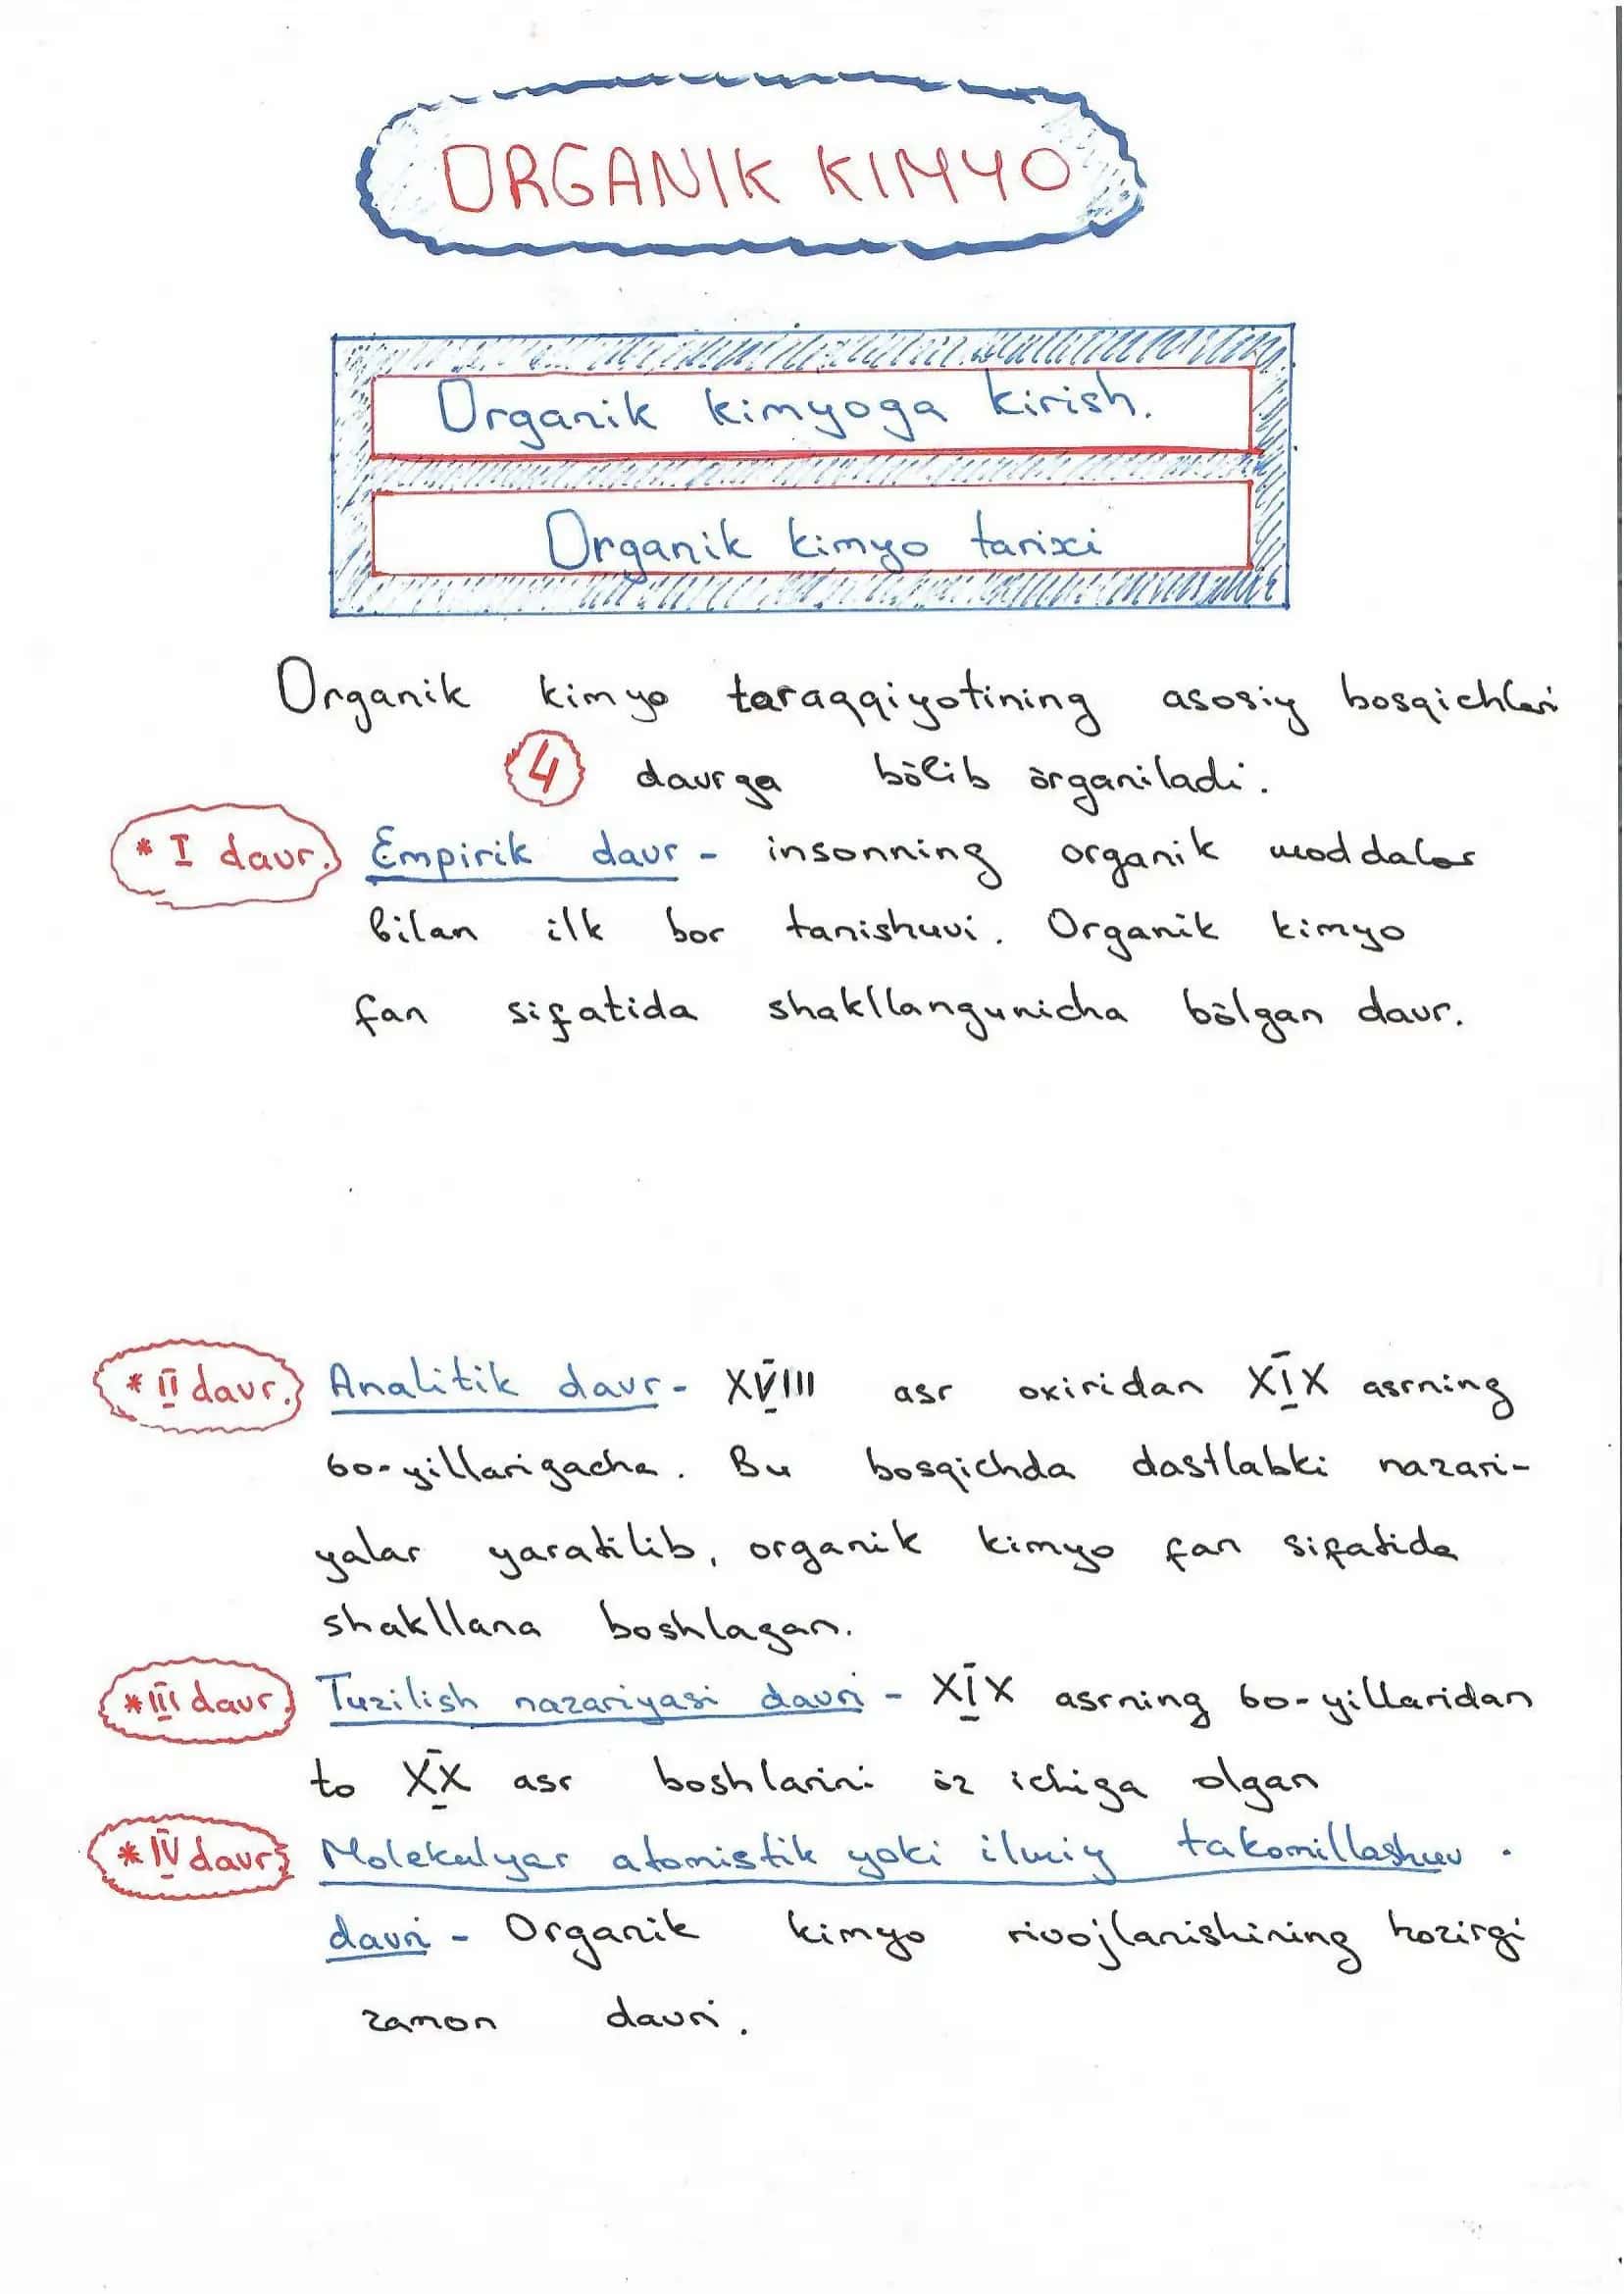 ORGANIK KIMYO
Organik kimyoga kirish.
Organik kimyo tarixi
Organik kimyo taraqqiyotining asosiy bosqichlari
4 davrga bōlib ōrganiladi.
* I davr. Empirik davr - insonning organik moddalar
bilan ilk bor tanishuvi. Organik kimyo
fan sifatida shakllangunicha bōlgan davr.
* II davr. Analitik davr - XVIII asr oxiridan XIX asrning
60-yillarigacha. Bu bosqichda dastlabki nazari-
yalar yaratilib, organik kimyo fan sifatida
shakllana boshlagan.
* III davr Tuzilish nazariyasi davri - XIX asrning 60-yillaridan
to XX asr boshlarini ōz ichiga olgan
* IV davr. Molekulyar atomistik yoki ilmiy takomillashuv .
davri - Organik kimyo rivojlanishining hozirgi
zamon davri.